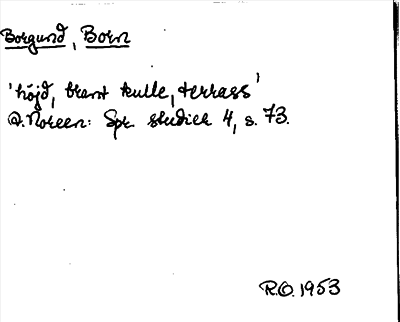 Borgund, Born
'höjd, brant kulle, terrass'
A. Noreen: Spr. studier 4, s. 73.
R.O. 1953